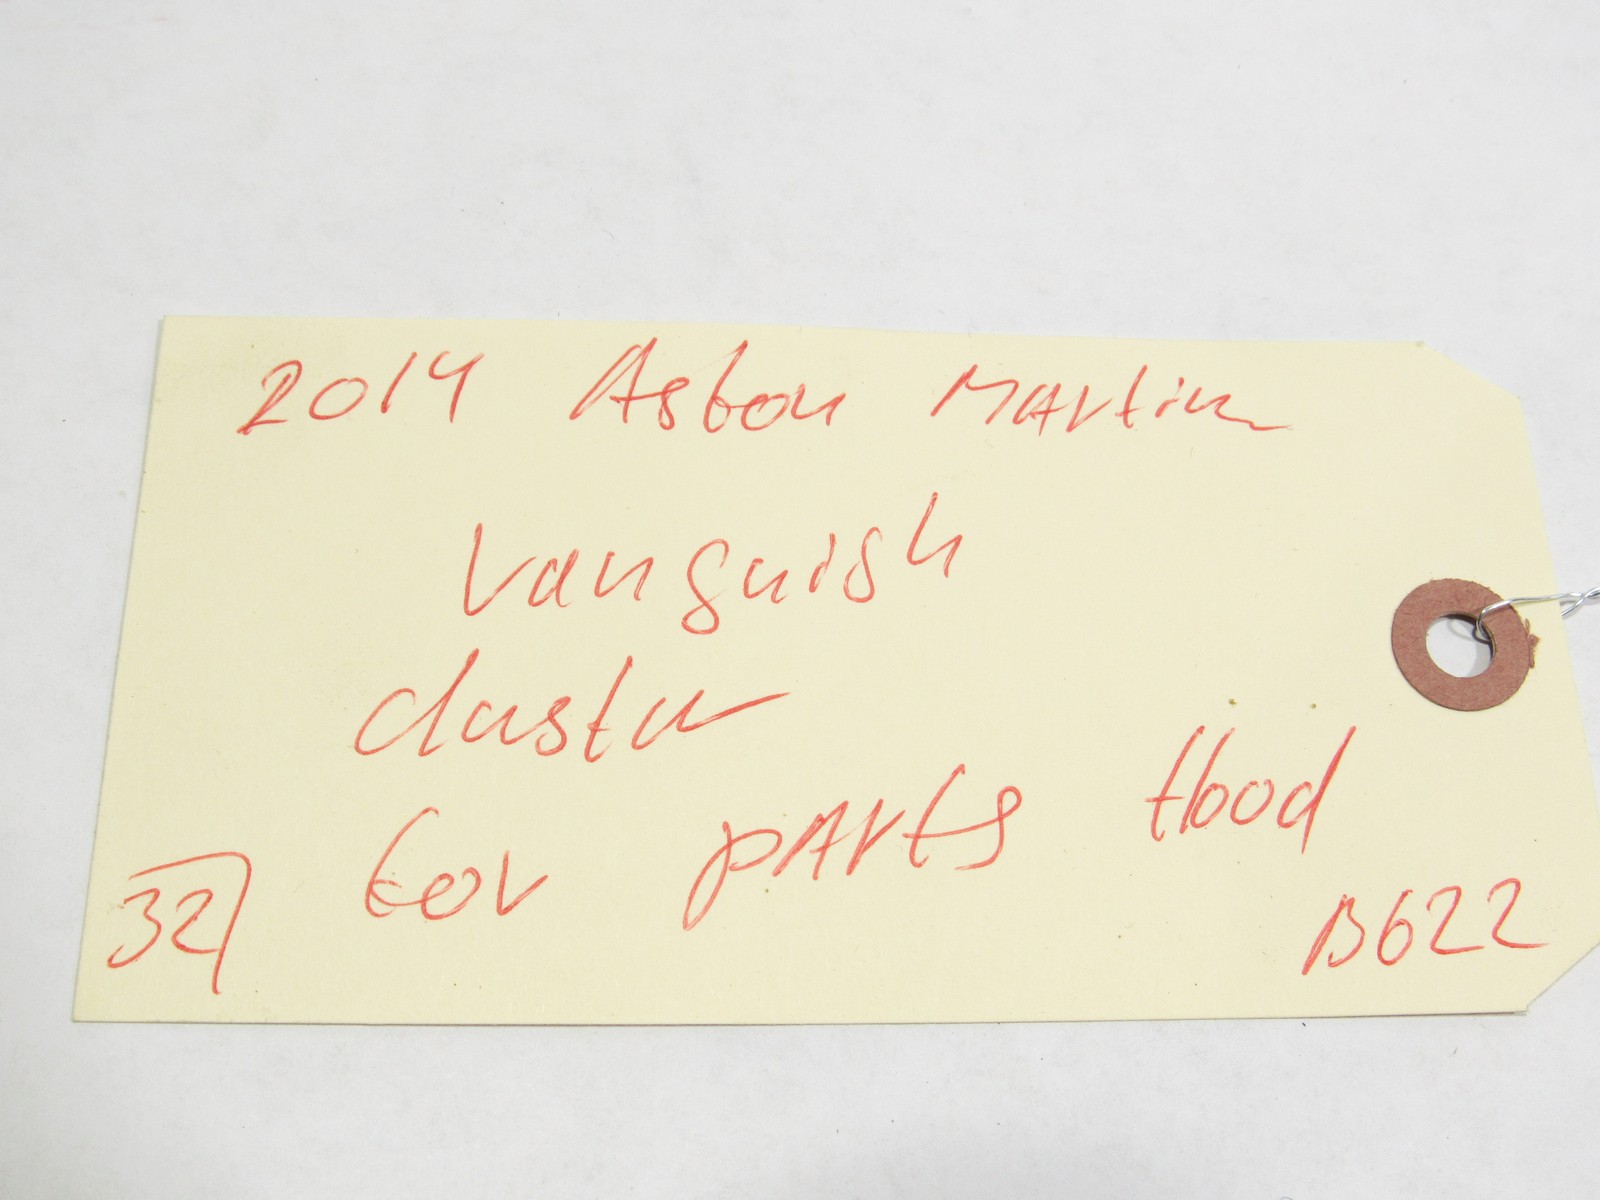 2014 Aston Martin
Vanquish
cluster
for parts flood
32
B622